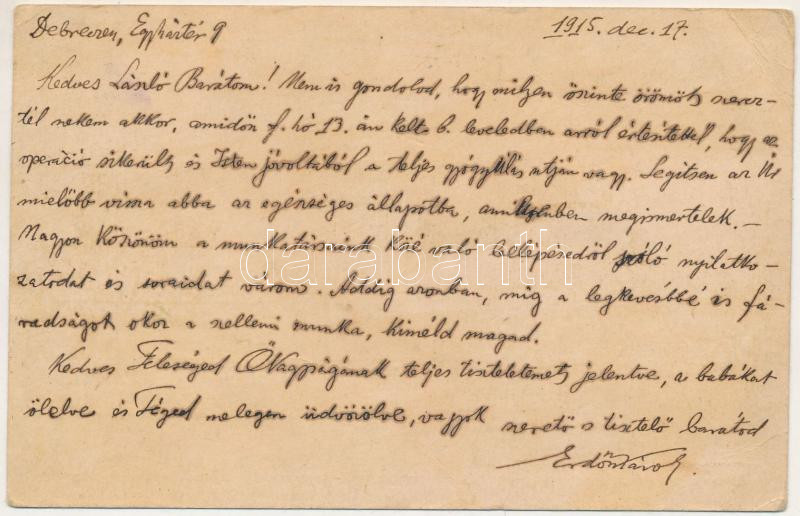 Debreczen, Egyháztér 9 1915. dec. 17.
Kedves László Barátom! Nem is gondolod, hogy milyen őszinte örömöt szerez-
tél nekem akkor, amidőn f. hó 13. án kelt b. leveledben arról értesítettél, hogy az
operáció sikerült és Isten jóvoltából a teljes gyógyulás utján vagy. Segítsen az Úr
mielőbb vissza abba az egészséges állapotba, amilyenben megismertelek. –
Nagyon köszönöm a munkatársaink közé való belépésedről szóló nyilatko-
zatodat és soraidat várom. Addig azonban, míg a legkevésbbé is fá-
radságot okoz a szellemi munka, kíméld magad.
Kedves Feleséged Őnagyságának teljes tiszteletemet jelentve, a babákat
ölelve és Téged melegen üdvözölve, vagyok szerető s tisztelő barátod
Erdős Károly.
darabanth